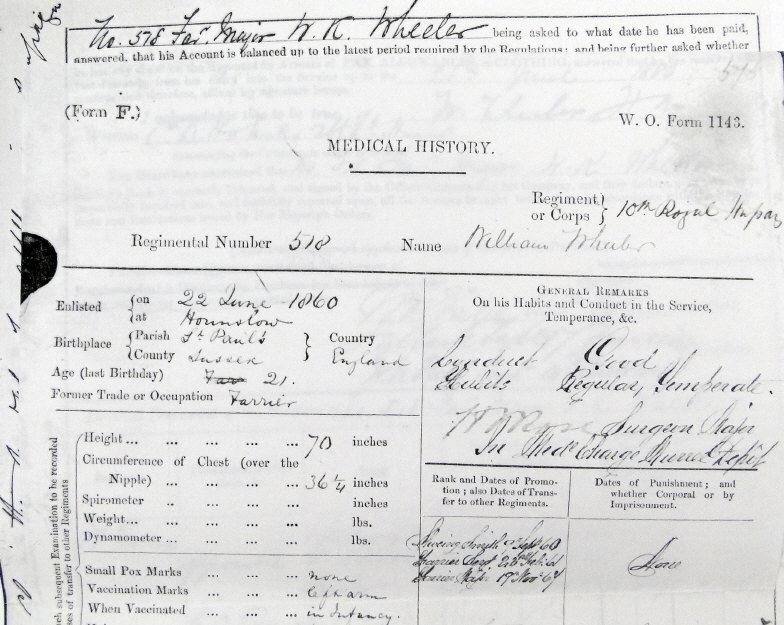 No. 578 Far. Major W. K. Wheeler being asked to what date he has been paid,
answered, that his Account is balanced up to the latest period required by the Regulations; and being further asked whether
578
(Form F.)
W. O. Form 1143.
MEDICAL HISTORY.
Regiment or Corps } 10th Royal Hussars
Regimental Number 578 Name William Wheeler
Enlisted { on 22 June 1860
at Hounslow
Birthplace { Parish St. Paul's } Country
County Sussex England
Age (last Birthday) 21.
Former Trade or Occupation Farrier
GENERAL REMARKS
On his Habits and Conduct in the Service,
Temperance, &c.
Conduct Good
Habits Regular, Temperate.
Surgeon Major
In Medl Charge Depôt
each subsequent Examination to be recorded
of transfer to other Regiments
Height... ... ... ... ... 70 inches
Circumference of Chest (over the
Nipple) ... ... ... ... 36 1/4 inches
Spirometer ... ... ... ... inches
Weight... ... ... ... ... lbs.
Dynamometer ... ... ... ... lbs.
Small Pox Marks ... ... ... none
Vaccination Marks ... ... ... left arm
When Vaccinated ... ... ... in Infancy.
Rank and Dates of Promotion; also Dates of Transfer to other Regiments.
Dates of Punishment; and whether Corporal or by Imprisonment.
Shoeing Smyth Sept 60
Farrier
Farrier Major 19 Nov 67
None